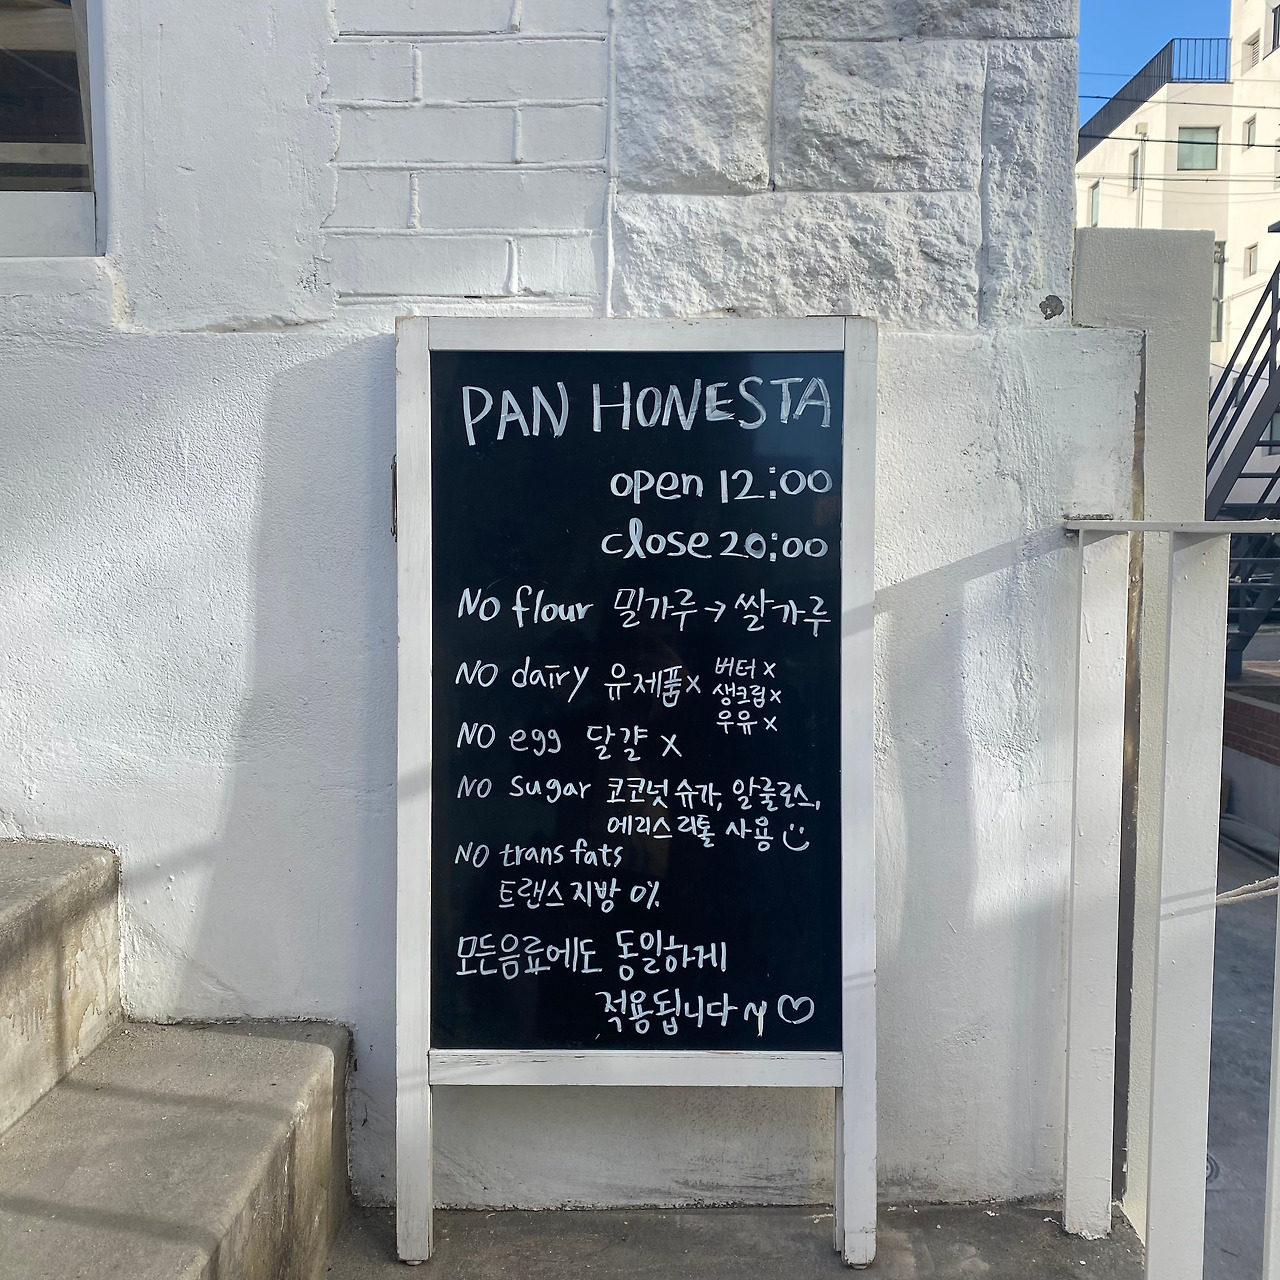 PAN HONESTA
open 12:00
close 20:00
NO flour 밀가루 → 쌀가루
NO dairy 유제품 x 버터 x
생크림 x
우유 x
NO egg 달걀 x
NO sugar 코코넛 슈가, 알룰로스,
에리스리톨 사용 :)
NO trans fats
트랜스 지방 0%
모든음료에도 동일하게
적용됩니다~♡